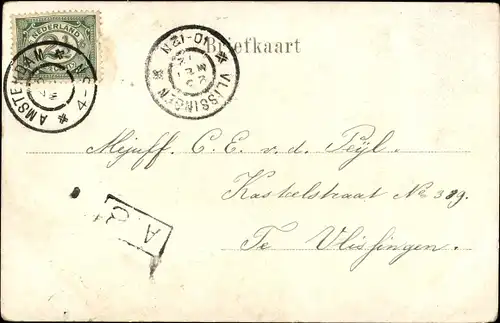 NEDERLAND
AMSTERDAM
VLISSINGEN
10-12N
Briefkaart
Mejuff. C. E. v. d. Peijl.
Kastelstraat No 319.
Te Vlissingen.
A